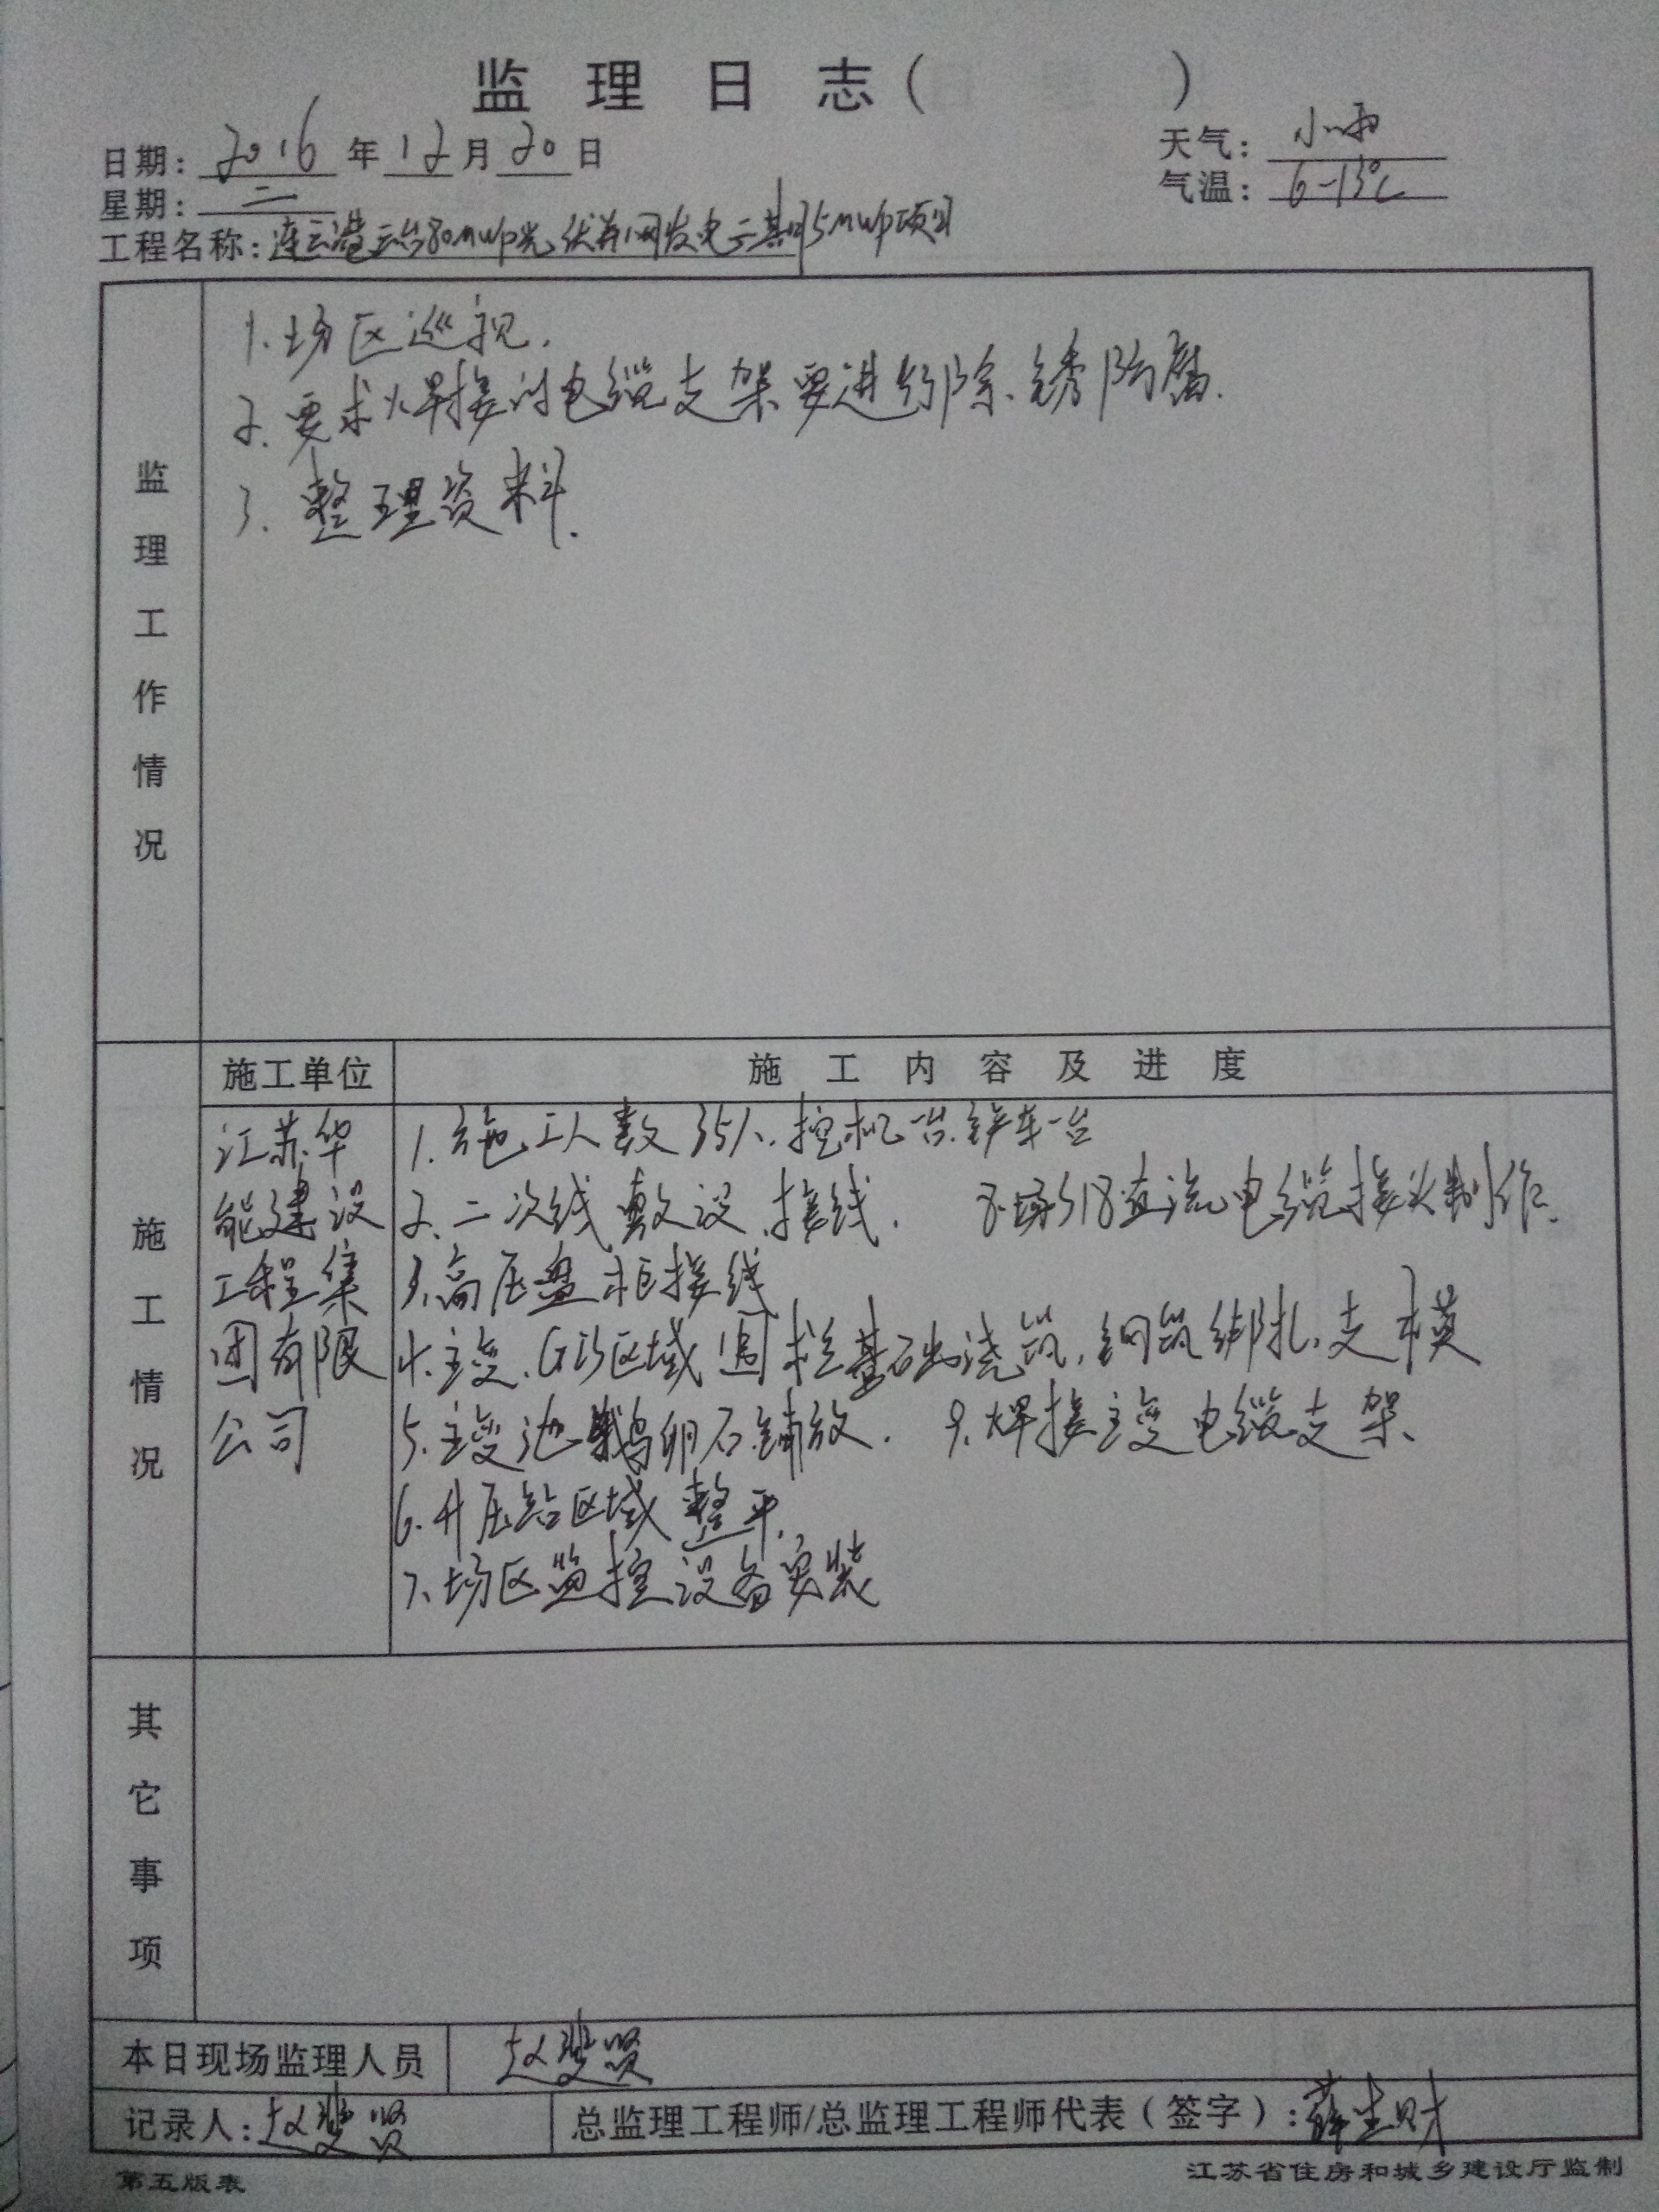 监理日志（ ）
日期：2016年12月20日 天气：小雨
星期：二 气温：6-13℃
工程名称：连云港云台80MWp光伏并网发电二期35MWp项目
监理工作情况
1.场区巡视.
2.要求焊接的电缆支架要进行除锈防腐.
3.整理资料.
施工情况
施工单位 施工内容及进度
江苏华
能建设
工程集
团有限
公司
1.施工人数35人.挖机一台.铲车一台
2.二次线敷设、接线. 8.场外直流电缆接头制作.
3.高压盘柜接线
4.主变、GIS区域围栏基础浇筑,钢筋绑扎、支模
5.主变池鹅卵石铺放. 9.焊接主变电缆支架、
6.升压站区域整平.
7.场区监控设备安装
其它事项
本日现场监理人员 赵 贤
记录人：赵 贤 总监理工程师/总监理工程师代表（签字）：薛 财
第五版表 江苏省住房和城乡建设厅监制